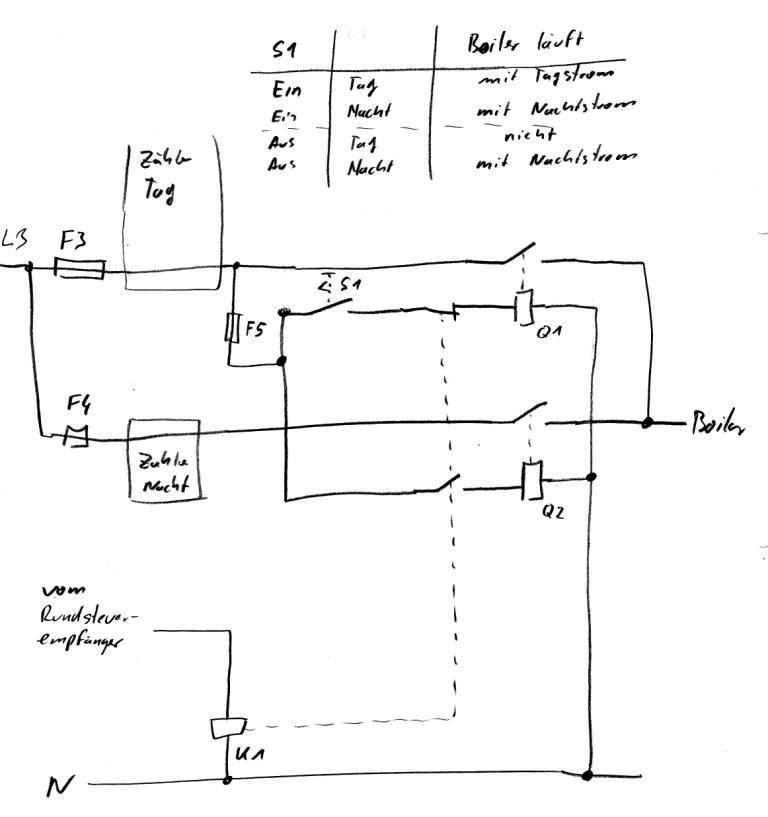 S1 Boiler läuft
Ein Tag mit Tagstrom
Ein Nacht mit Nachtstrom
Aus Tag nicht
Aus Nacht mit Nachtstrom
Zähler
Tag
L3
F3
S1
F5
Q1
F4
Boiler
Zähler
Nacht
Q2
vom
Rundsteuer-
empfänger
K1
N